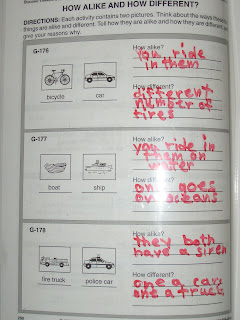 HOW ALIKE AND HOW DIFFERENT?
DIRECTIONS: Each activity contains two pictures. Think about the ways these
things are alike and different. Tell how they are alike and how they are different,
give your reasons why.
G-176
bicycle
car
How alike?
you ride
in them
How different?
different
number of
tires
G-177
boat
ship
How alike?
you ride in
them on
water
How different?
on goes
by oceans
G-178
fire truck
police car
How alike?
they both
have a siren
How different?
one a car
one a truck